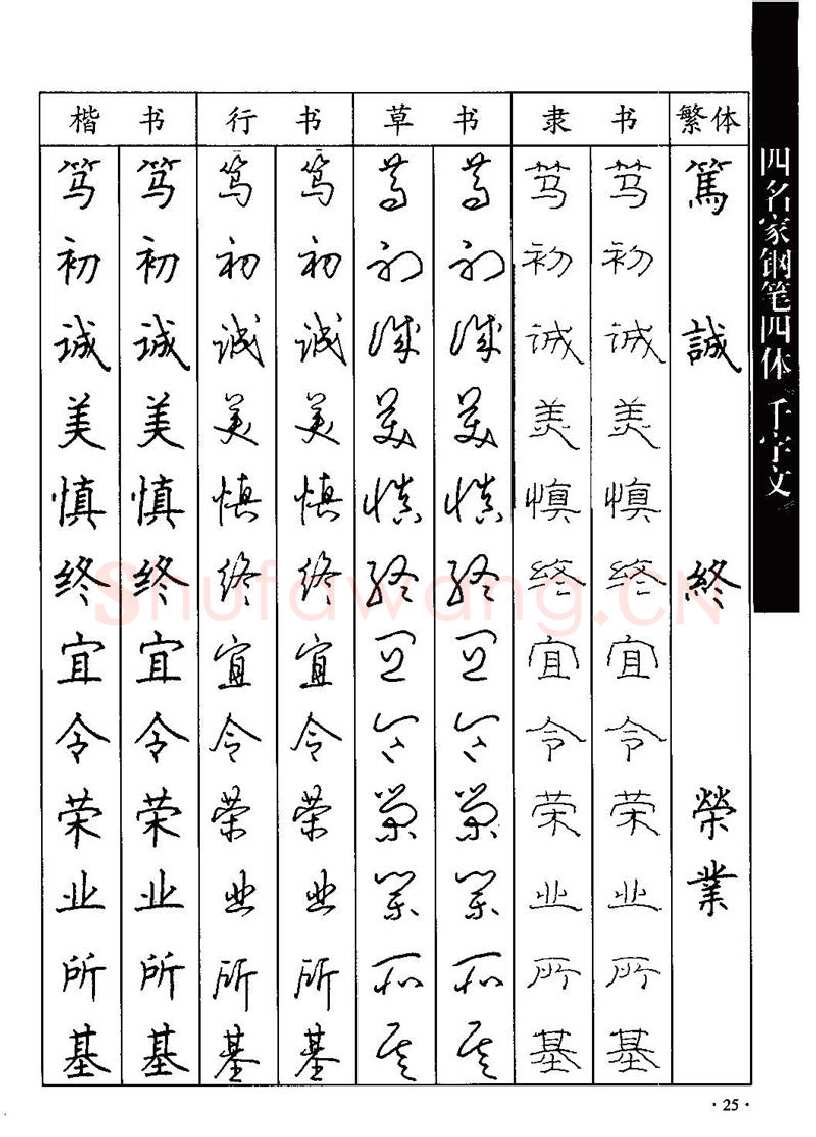 楷书 行书 草书 隶书 繁体
笃 笃 笃 笃 笃 笃 笃 笃 篤
初 初 初 初 初 初 初 初
诚 诚 诚 诚 诚 诚 诚 诚 誠
美 美 美 美 美 美 美 美
慎 慎 慎 慎 慎 慎 慎 慎
终 终 终 终 终 终 终 终 終
宜 宜 宜 宜 宜 宜 宜 宜
令 令 令 令 令 令 令 令
荣 荣 荣 荣 荣 荣 荣 荣 榮
业 业 业 业 业 业 业 业 業
所 所 所 所 所 所 所 所
基 基 基 基 基 基 基 基
四名家钢笔四体千字文
Shufawang.CN
·25·